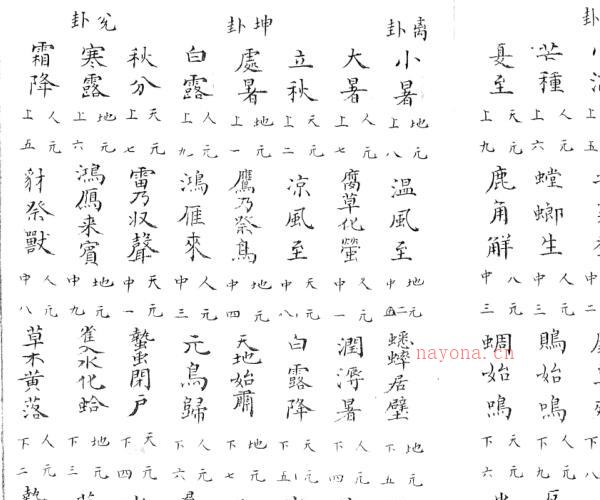 芒種
人元上六
螳螂生
人元中三
鵙始鳴
夏至
天元上九
鹿角解
元中三
蜩始鳴
天元下六
離卦
小暑
地元上八
溫風至
地元中
蟋蟀居壁
地元下五
大暑
人元上七
腐草化螢
元中一
潤溽暑
人元下四
立秋
天元上二
涼風至
天元中八
白露降
天元下五
坤卦
處暑
地元上一
鷹乃祭鳥
地元中四
天地始肅
地元下七
白露
人元上九
鴻雁來
人元中三
元鳥歸
人元下六
秋分
天元上七
雷乃収聲
天元中一
蟄虫閉戶
天元下四
兌卦
寒露
地元上六
鴻鴈来賓
地元中九
雀入水化蛤
地元下三
霜降
人元上五
豺祭獸
人元中八
草木黄落
人元下二
nayona.cn